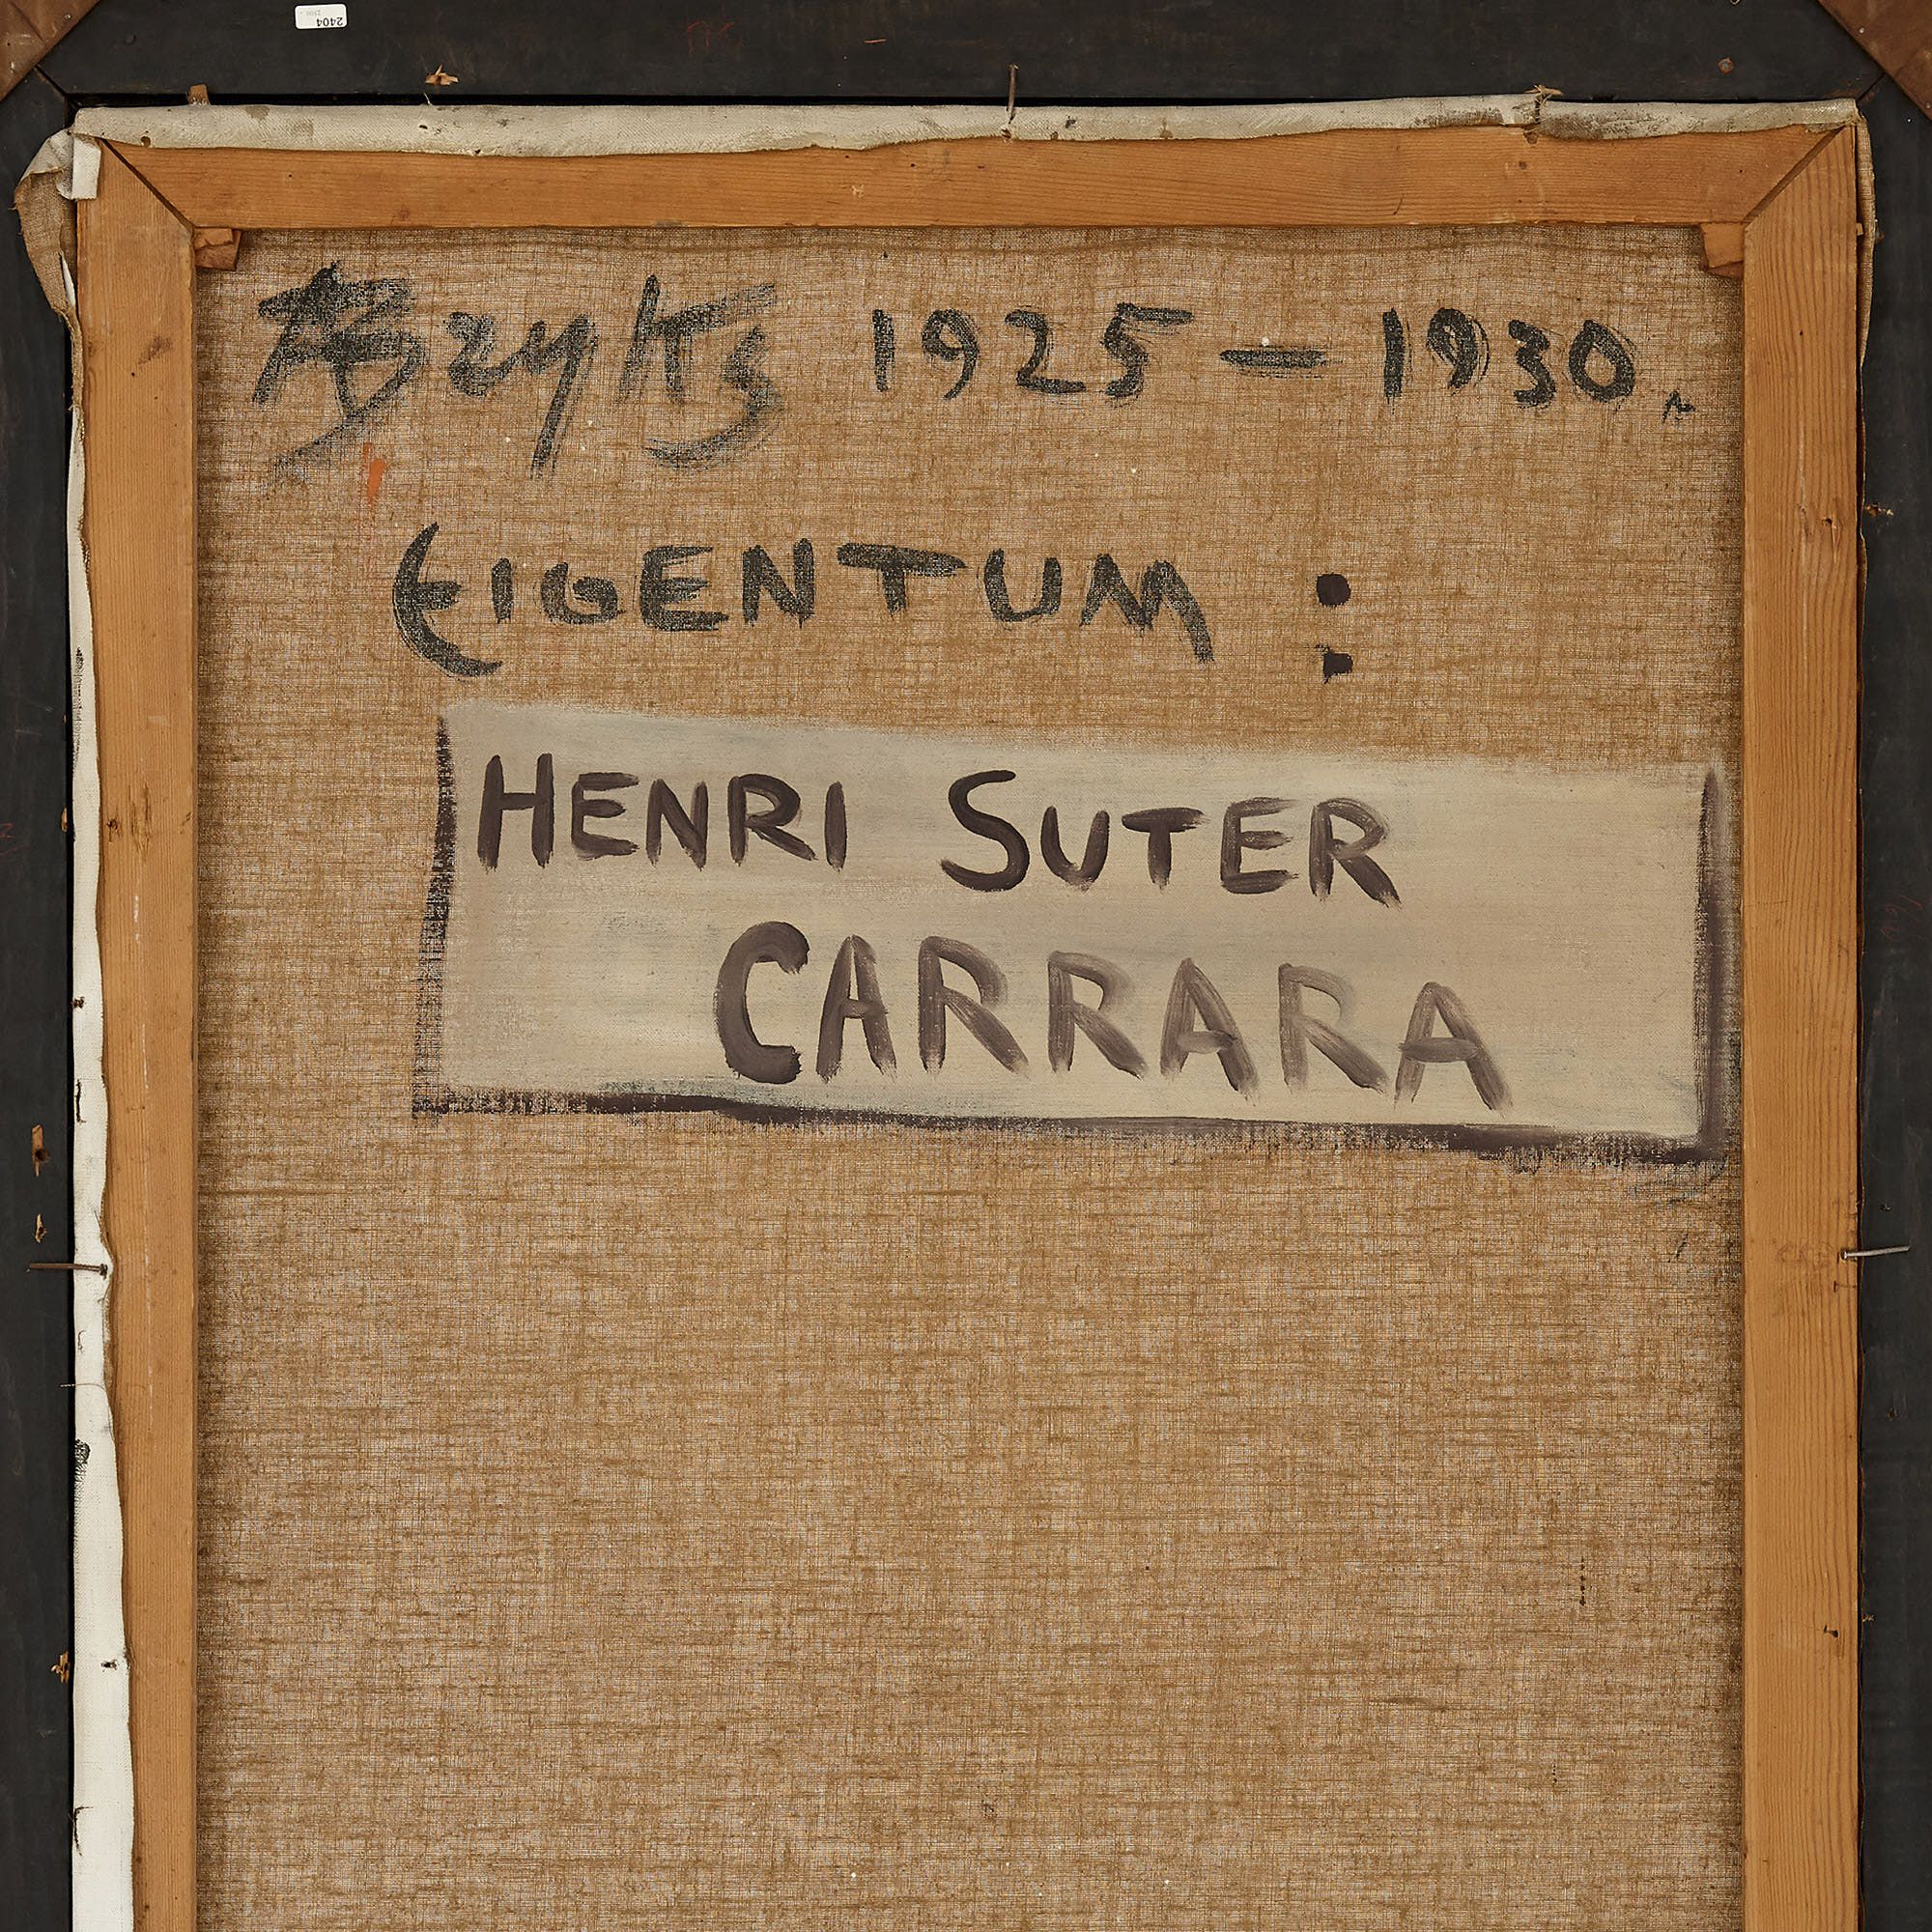 2404
1925 – 1930.
EIGENTUM :
HENRI SUTER
CARRARA